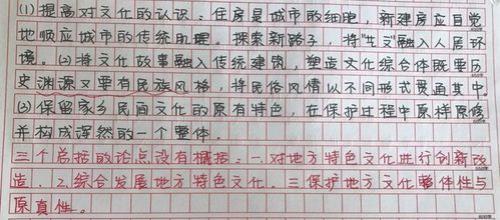 (1)提高对文化的认识：住房是城市的细胞，新建房应自觉
地顺应城市的传统肌理。探索新路子，将“生文”融入人居环
境。(2)将文化故事融入传统建筑，塑造文化综合体既要历
史渊源又要有民族风格，将民俗风情以不同形式贯通其中。
(3)保留家乡民间文化的原有特色，在保护过程中原样原修
并构成浑然的一个整体。
三个总括的论点没有概括：一.对地方特色文化进行创新改
造．2.综合发展地方特色文化．三保护地方文化整体性与
原真性。